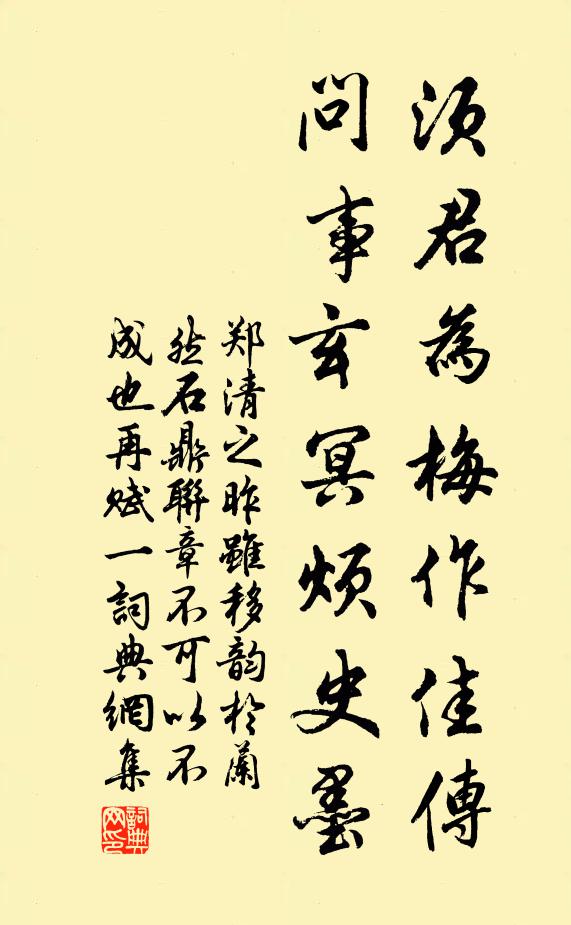 須君為梅作佳傳
問事玄冥煩史墨
郑清之昨雖移韵於蘭
然石鼎聯章不可以不
成也再赋一詞典網集
詞典网印